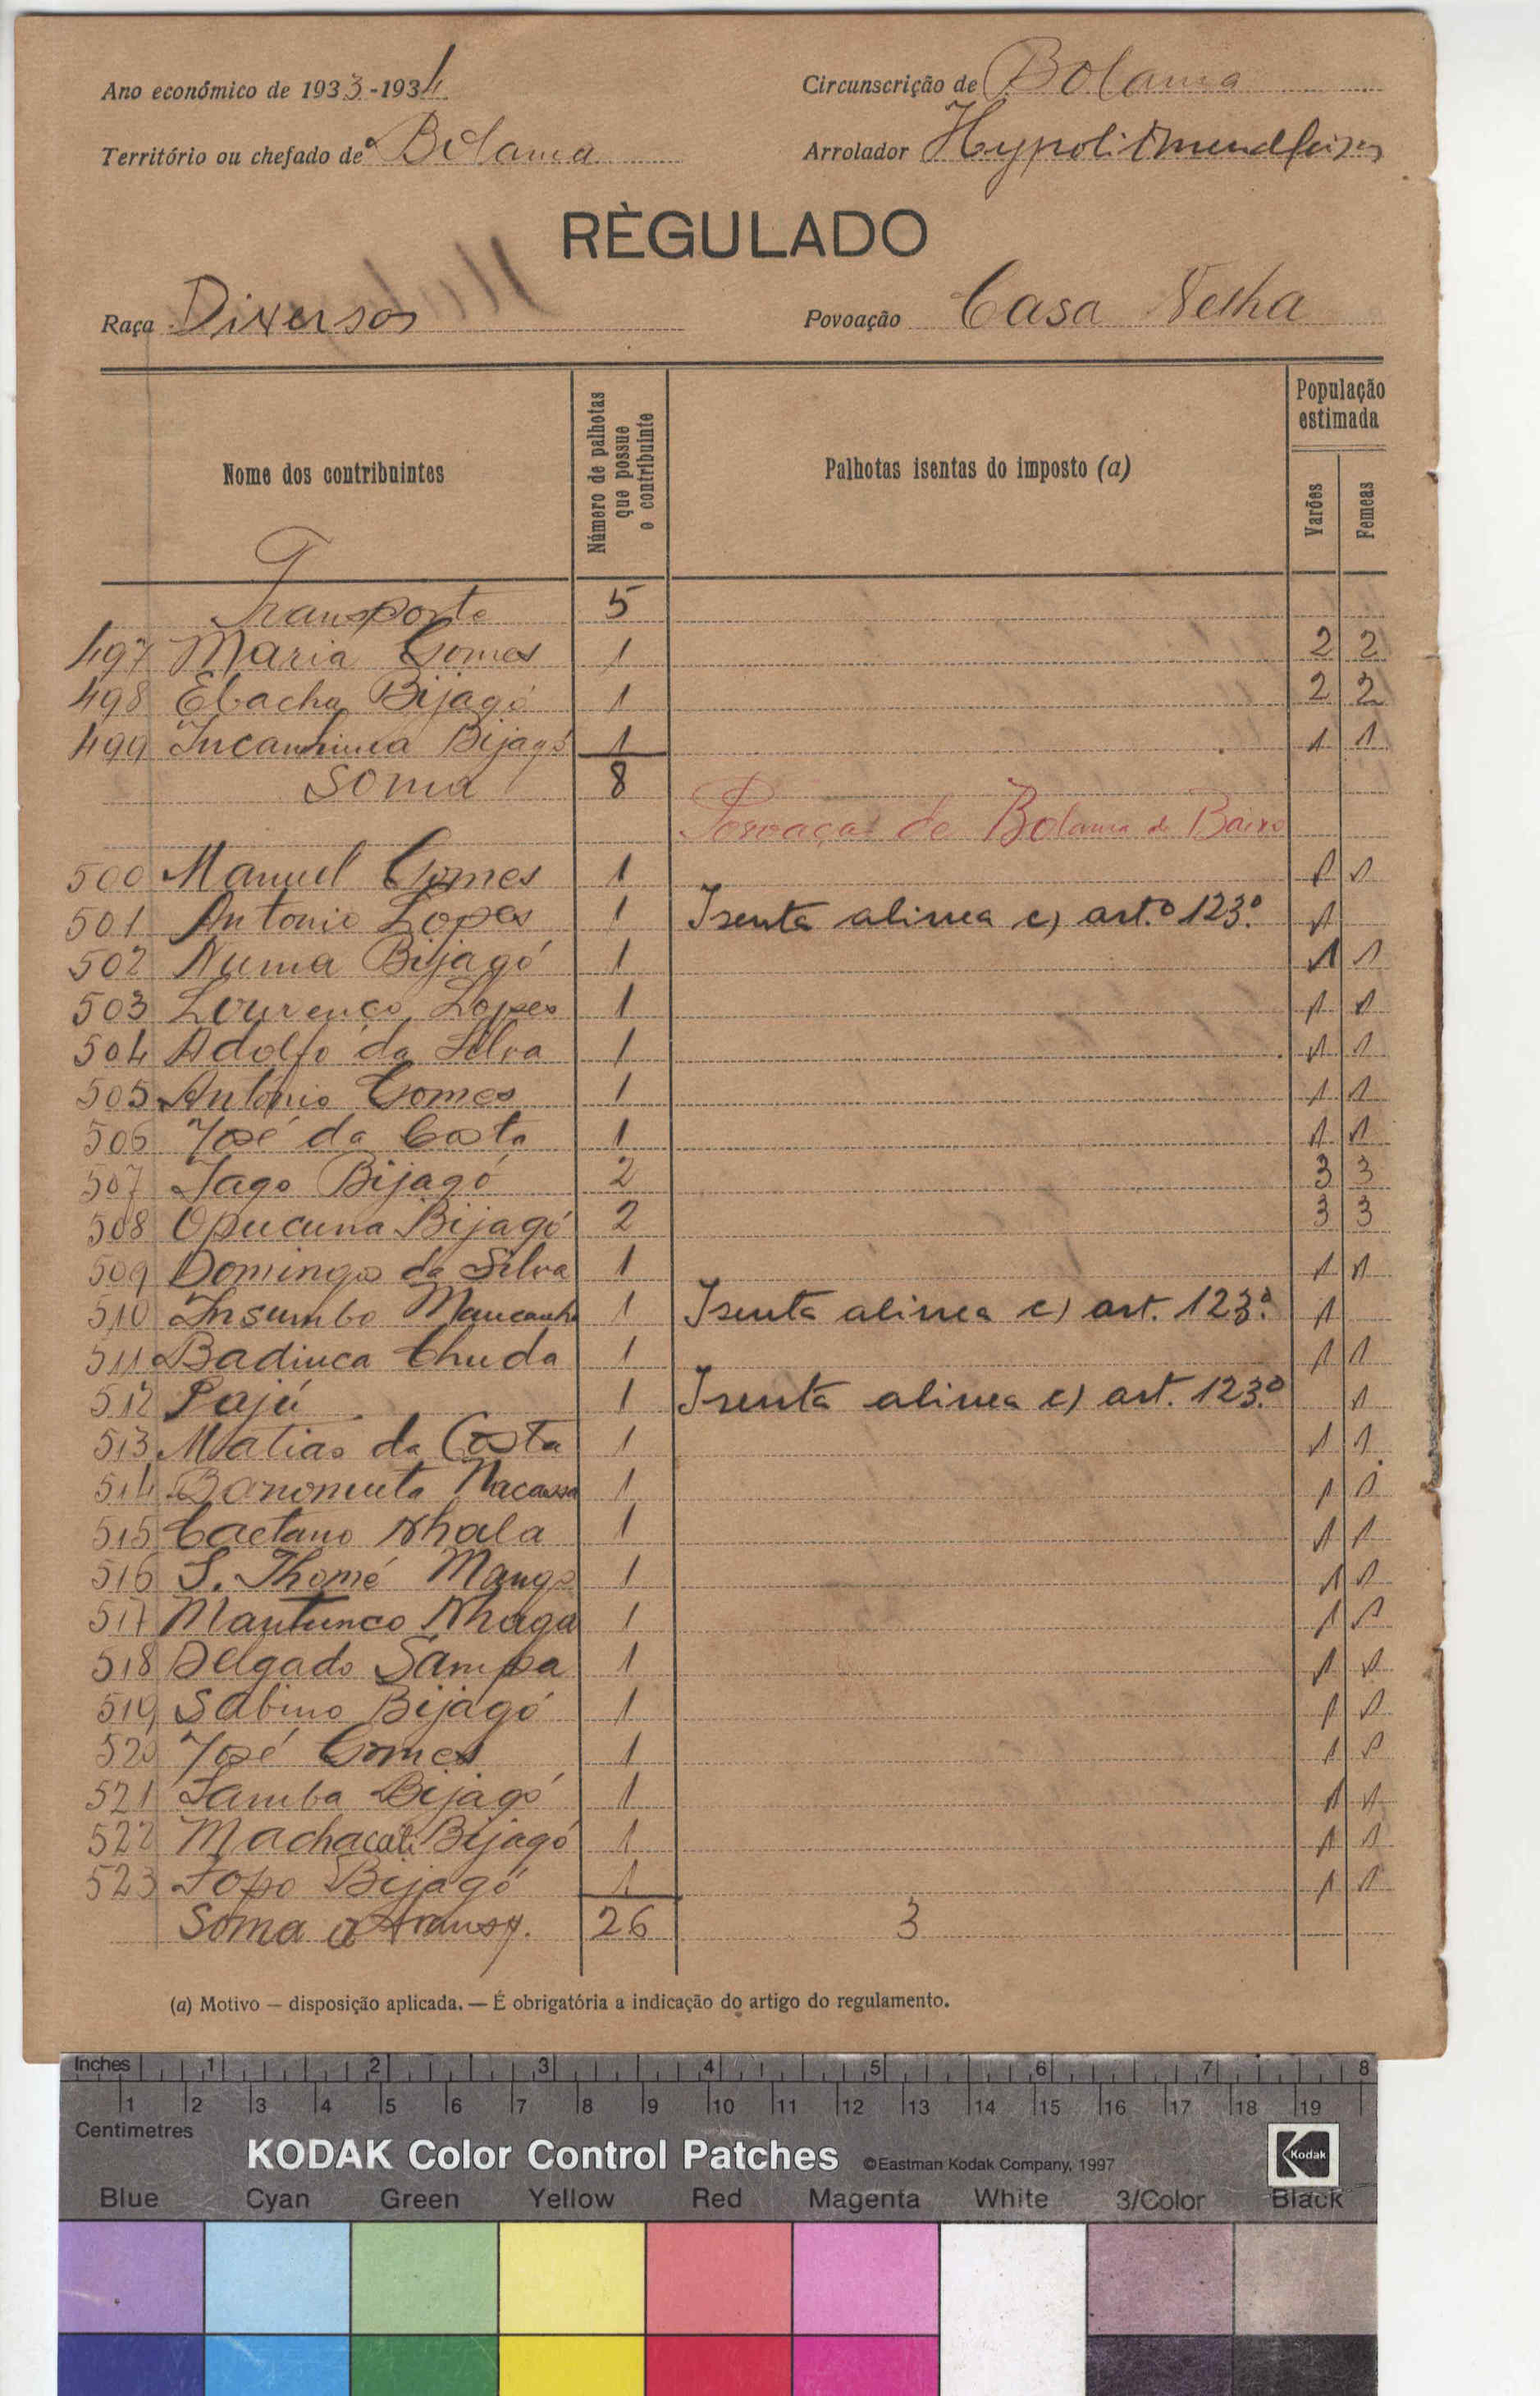 Ano económico de 1933-1934 Circunscrição de Bolama
Território ou chefado de Bolama Arrolador
RÈGULADO
Raça Diversos Povoação Casa Velha
Nome dos contribuintes
Número de palhotas que possue o contribuinte
Palhotas isentas do imposto (a)
População estimada
Varões
Femeas
Transporte 5
497 Maria Gomes 1 2 2
498 Ebacha Bijagó 1 2 2
499 Bijagó 1 1 1
Soma 8
Povoação de Bolama de Baixo
500 Manuel Gomes 1 1 1
501 Antonio Lopes 1 Isenta alinea c) art.º 123.º 1
502 Numa Bijagó 1 1 1
503 Lourenço Lopes 1 1 1
504 Adolfo da Silva 1 1 1
505 António Gomes 1 1 1
506 José da Costa 1 1 1
507 Jago Bijagó 2 3 3
508 Opucuna Bijagó 2 3 3
509 Domingos da Silva 1 1 1
510 Insumbo Mancanha 1 Isenta alinea c) art. 123.º 1
511 Badinca Chuda 1 1 1
512 Pajú 1 Isenta alinea c) art. 123.º 1
513 Matias da Costa 1 1 1
514 1 1 1
515 Caetano Nhala 1 1 1
516 S. Thomé Mango 1 1 1
517 Mantunco Nhaga 1 1 1
518 Delgado Sampa 1 1 1
519 Sabino Bijagó 1 1 1
520 José Gomes 1 1 1
521 Samba Bijagó 1 1 1
522 Bijagó 1 1 1
523 Bijagó 1 1 1
Soma a transp. 26 3
(a) Motivo — disposição aplicada. — É obrigatória a indicação do artigo do regulamento.
Inches 1 2 3 4 5 6 7 8
1 2 3 4 5 6 7 8 9 10 11 12 13 14 15 16 17 18 19
Centimetres
KODAK Color Control Patches ©Eastman Kodak Company, 1997 Kodak
Blue Cyan Green Yellow Red Magenta White 3/Color Black